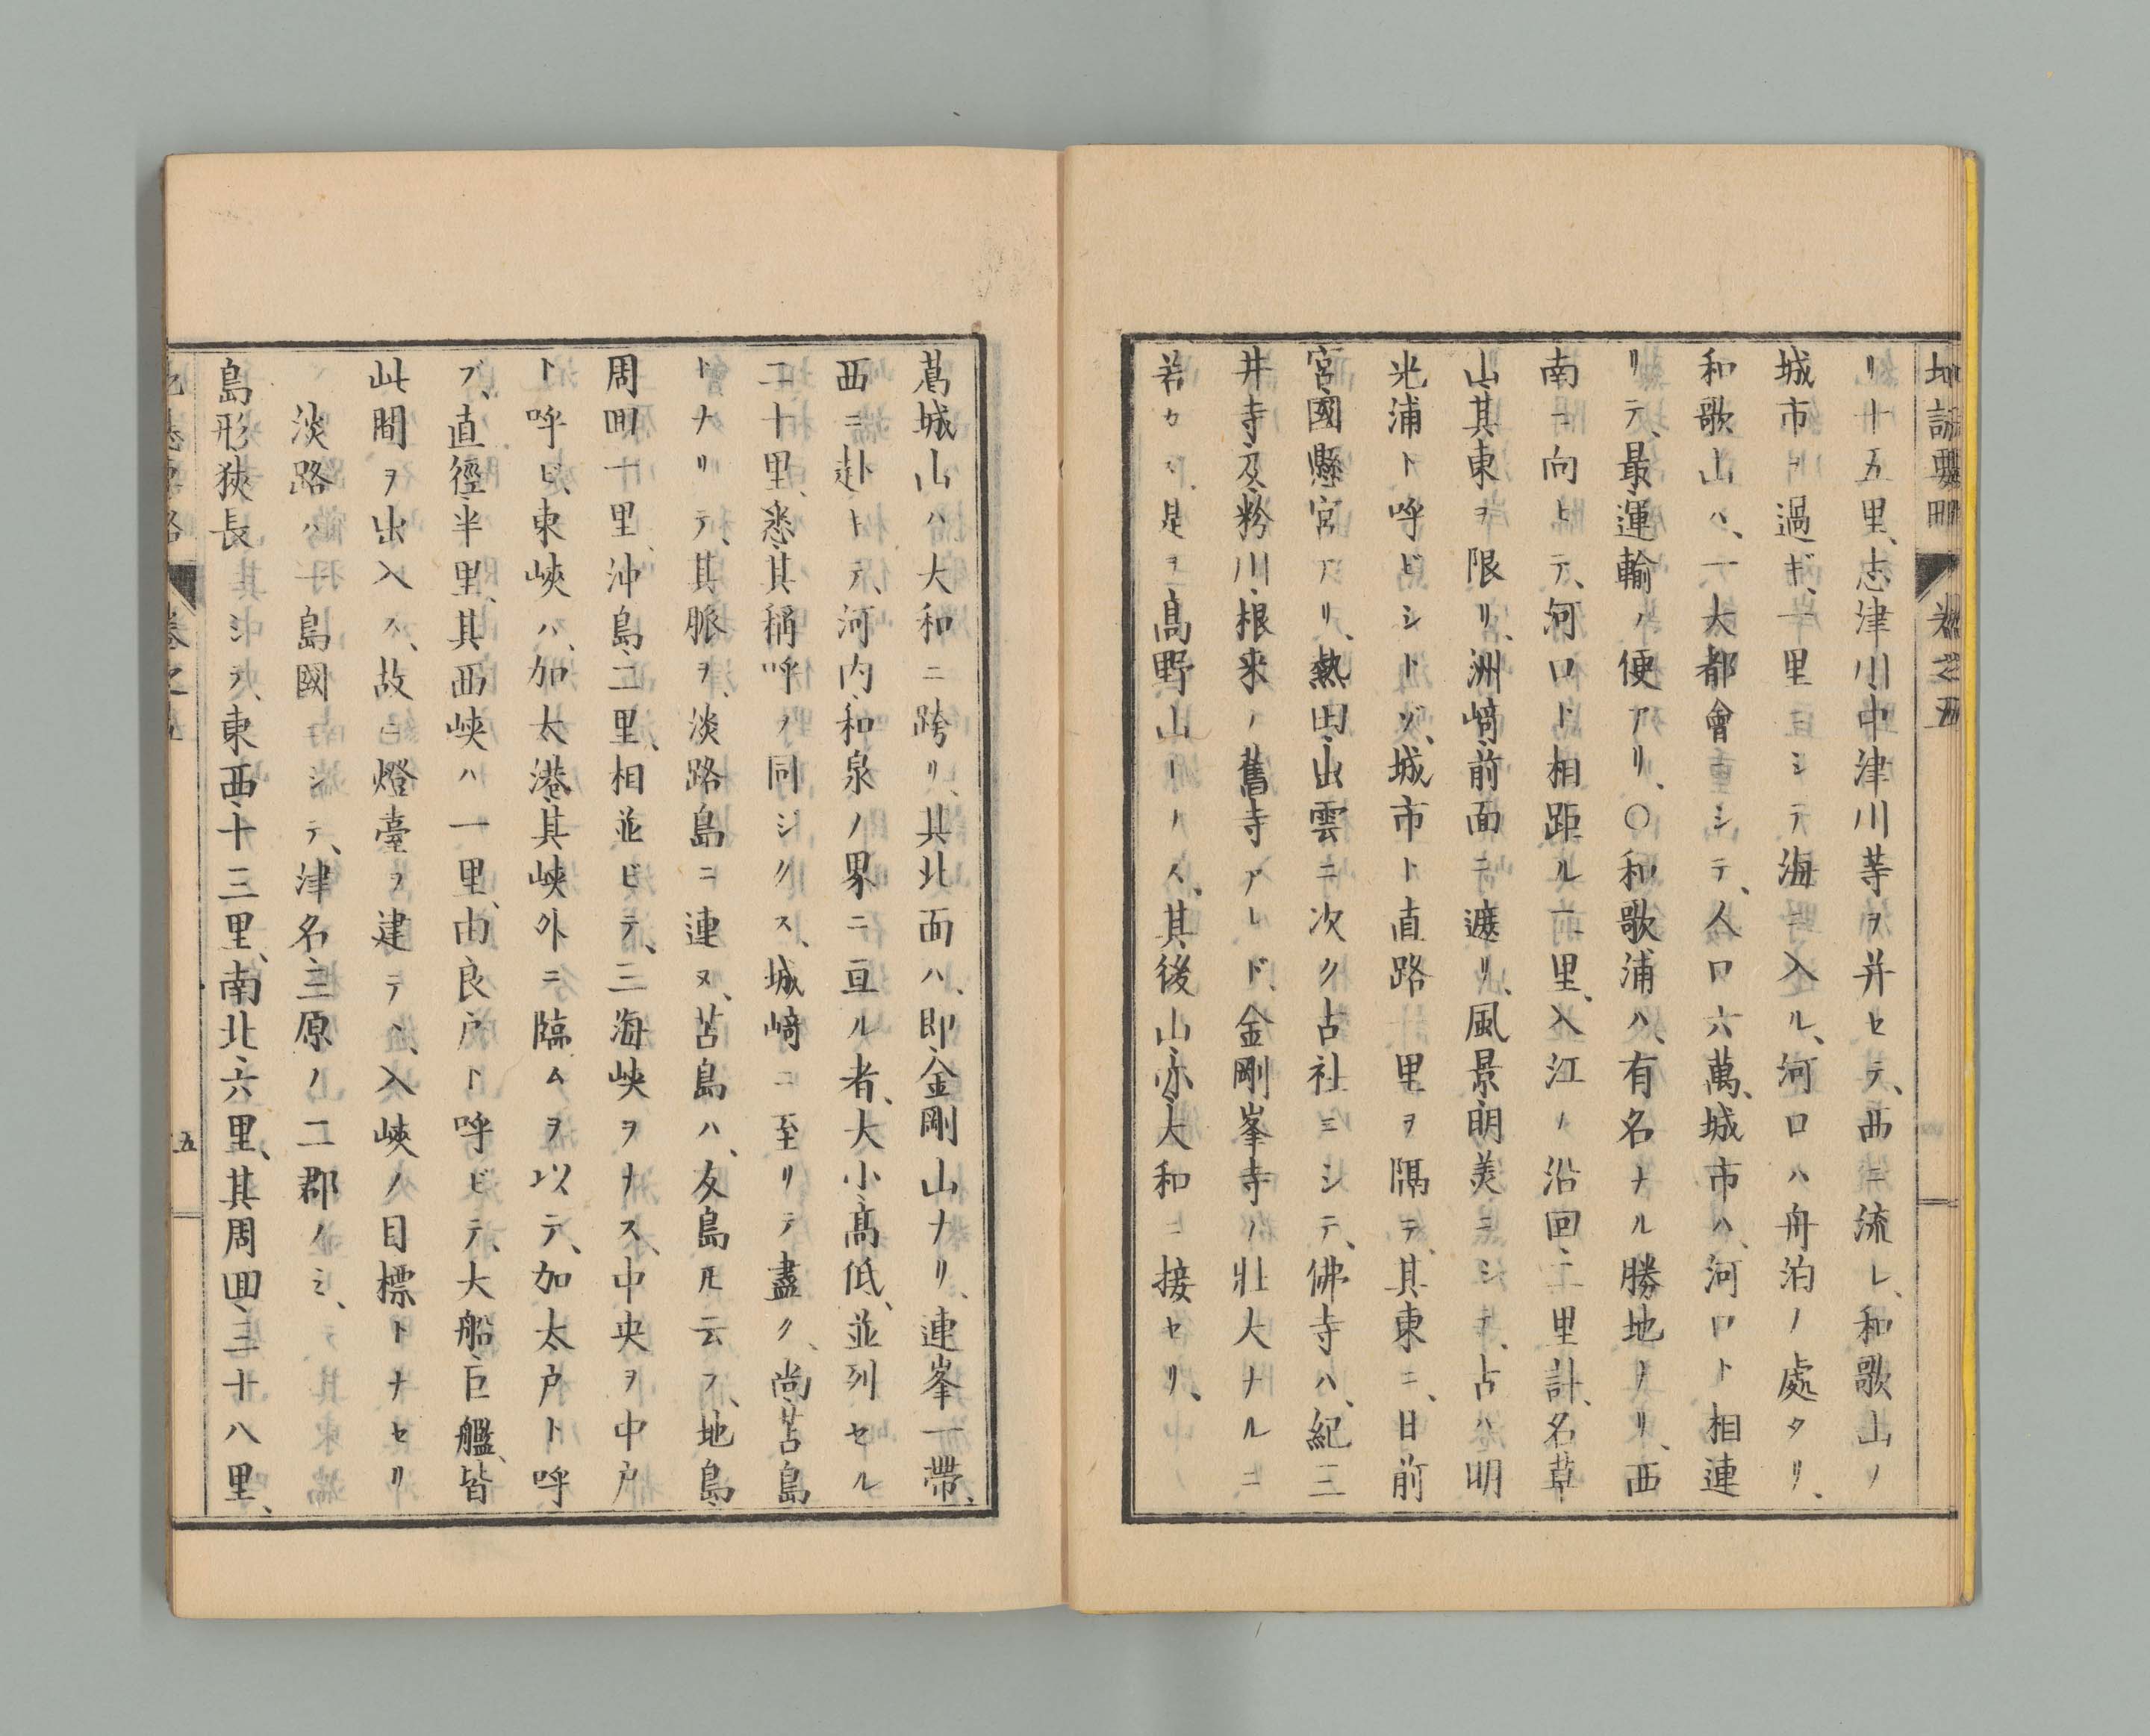 地誌要略 卷之五
リ十五里、志津川、中津川等ヲ并セテ、西ニ流レ、和歌山ノ
城市ヲ過ギ、一里且シテ海ニ入ル、河口ハ舟泊ノ處タリ、
和歌山ハ、一大都會ニシテ、人口六萬、城市ハ、河口ト相連
リテ、最運輸ノ便アリ、〇和歌浦ハ、有名ナル勝地ナリ、西
南ニ向ヒテ、河口ト相距ル一里、入江ノ沿回、二里計、名草
山、其東ヲ限リ、洲﨑、前面ニ遮リ、風景、明美ニシテ、古ハ明
光浦ト呼ビシトゾ、城市ト直路一里ヲ隔テ、其東ニ、日前
宮、國懸宮アリ、熱田、出雲ニ次ク古社ニシテ、佛寺ハ、紀三
井寺、及、粉川、根來ノ舊寺アレド、金剛峯寺ノ壯大ナルニ
若カズ、是ヲ高野山トノス、其後山、亦、大和ニ接セリ、
葛城山ハ大和ニ跨リ、其北面ハ、即、金剛山ナリ、連峯一帶、
西ニ赴トテ、河内、和泉ノ界ニ亘ル者、大小、高低、並列セル
二十里、悉、其稱呼ノ同ジクス、城﨑ニ至リテ盡ク、尚、苫島
トナリテ、其脈ヲ、淡路島ニ連ヌ、苫島ハ、友島圧云フ、地島、
周囬一里、沖島、二里、相並ビテ、三海峽ヲナス、中央ヲ中戸
ト呼ビ、東峽ハ、加太港、其峽外ニ臨ムヲ以テ、加太戸ト呼
ブ、直徑、半里、其西峽ハ一里、由良戸ト呼ビテ、大船、巨艦、皆
此間ヲ出入ス、故ニ燈臺ヲ建テヽ、入峽ノ目標トナセリ
淡路ハ一島國ニシテ、津名、三原ノ二郡ノミ、
島形狹長ニシテ、東西、十三里、南北、六里、其周囬、三十八里、
卷之五
五